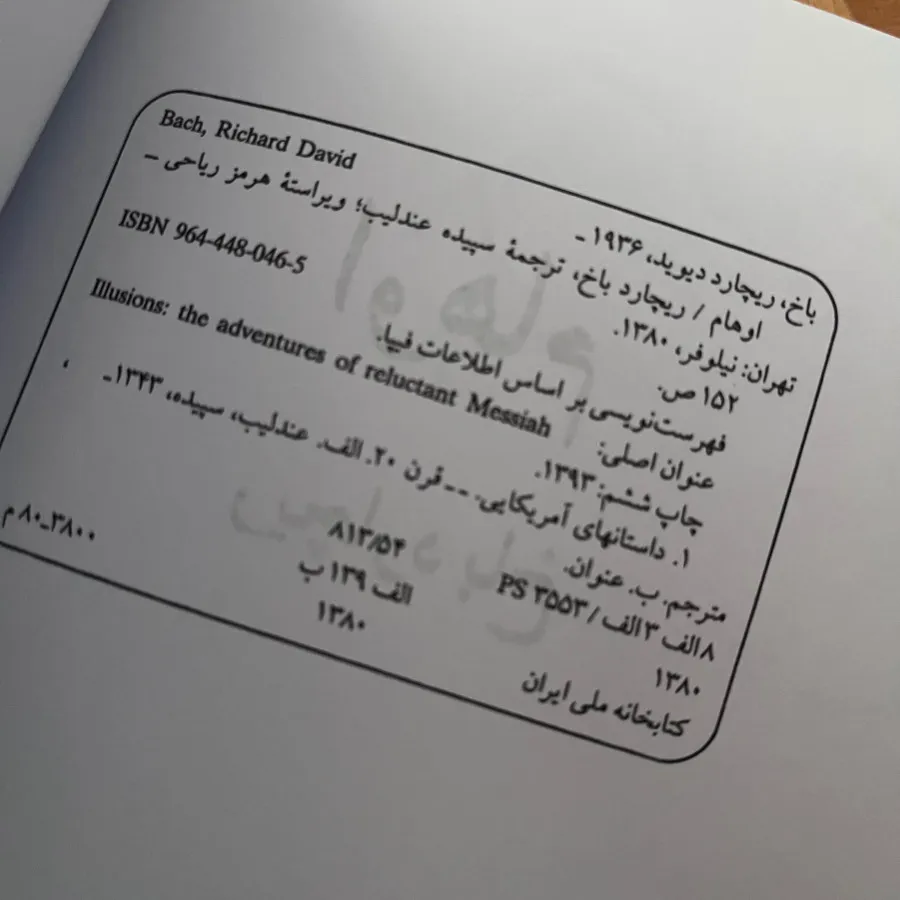 Bach, Richard David
باخ، ریچارد دیوید، ۱۹۳۶ ـ
اوهام / ریچارد باخ، ترجمهٔ سپیده عندلیب؛ ویراستهٔ هرمز ریاحی –
تهران: نیلوفر، ۱۳۸۰.
۱۵۲ ص. ISBN 964-448-046-5
فهرست‌نویسی بر اساس اطلاعات فیپا.
عنوان اصلی: Illusions: the adventures of reluctant Messiah
چاپ ششم: ۱۳۹۳.
۱. داستانهای آمریکایی. -- قرن ۲۰. الف. عندلیب، سپیده، ۱۳۴۳ـ ،
مترجم. ب. عنوان.
۸ الف ۳ الف / PS ۳۵۵۳ ۸۱۳/۵۴
۱۳۸۰ الف ۱۳۹ ب
۱۳۸۰
کتابخانه ملی ایران ۳۸۰۰ـ۸۰ م
اوهام
ریچارد باخ